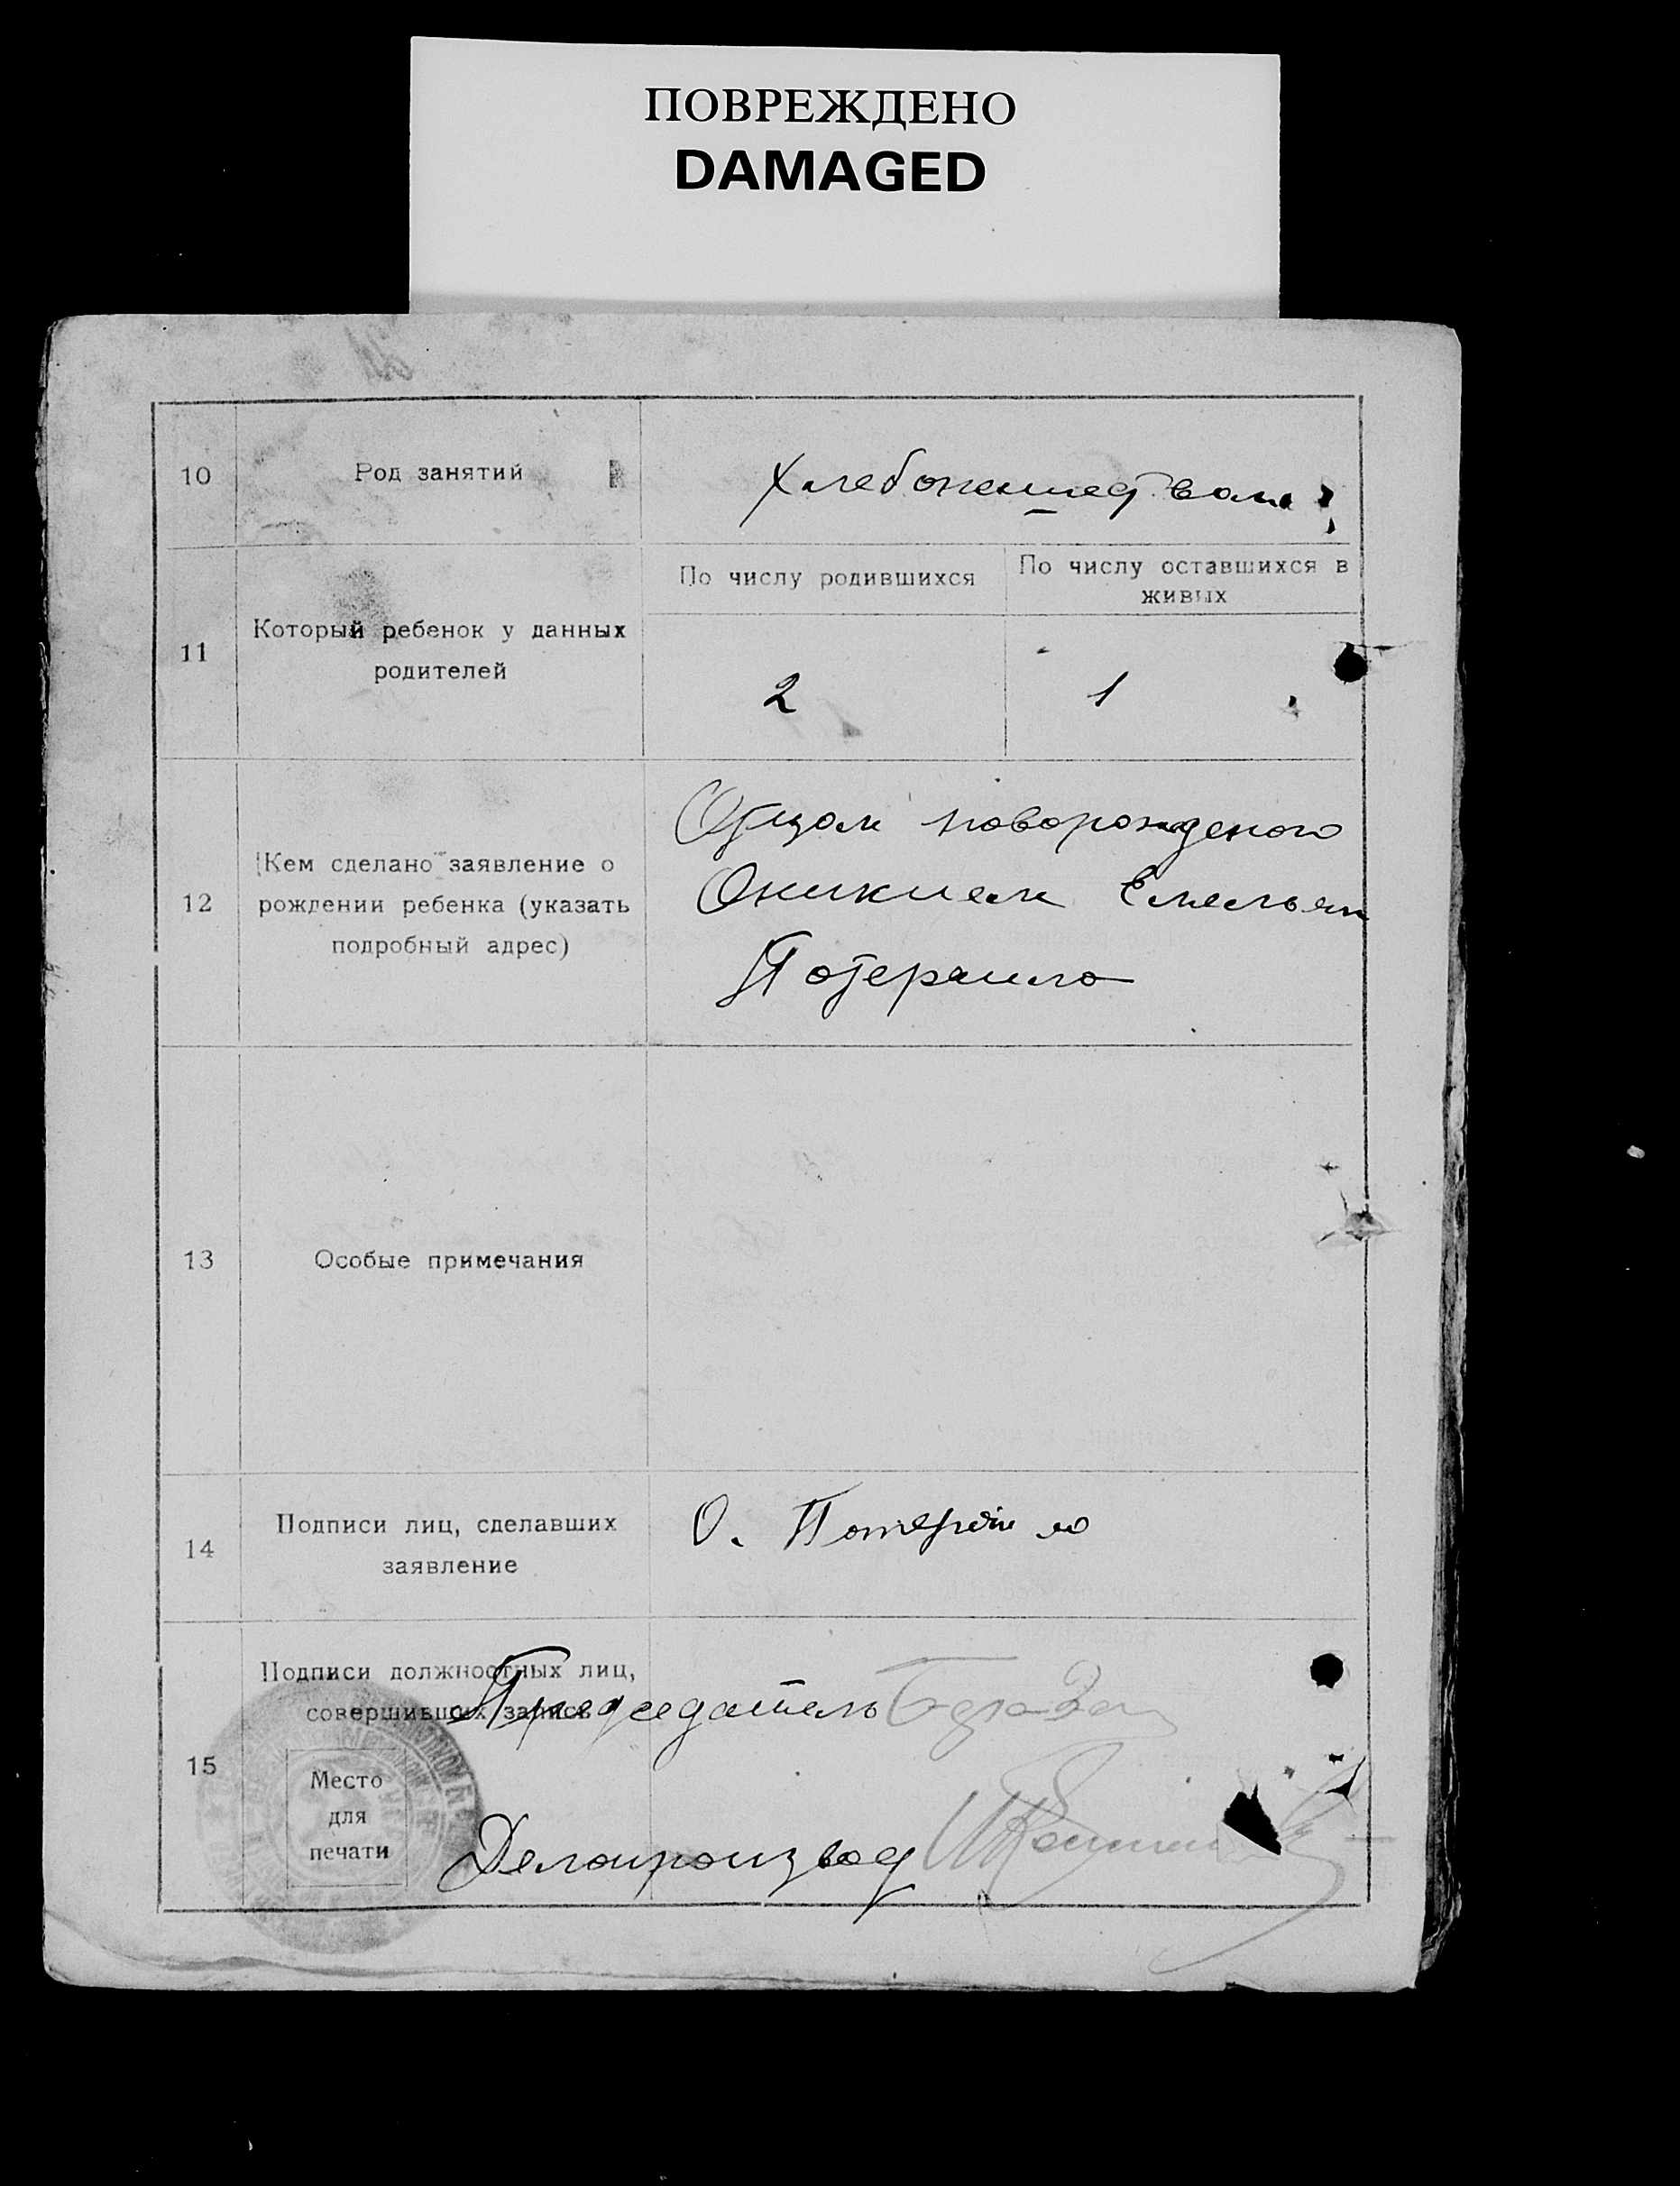 ПОВРЕЖДЕНО
DAMAGED
10
Род занятий
11
Который ребенок у данных
родителей
По числу родившихся
По числу оставшихся в
живых
2
1
12
Кем сделано заявление о
рождении ребенка (указать
подробный адрес)
Отцом новорожденого
Оникием Емельян
Потерайло
13
Особые примечания
14
Подписи лиц, сделавших
заявление
О. Потерайло
15
Подписи должностных лиц,
совершивших запись
Председатель
Место
для
печати
Делопроизвод